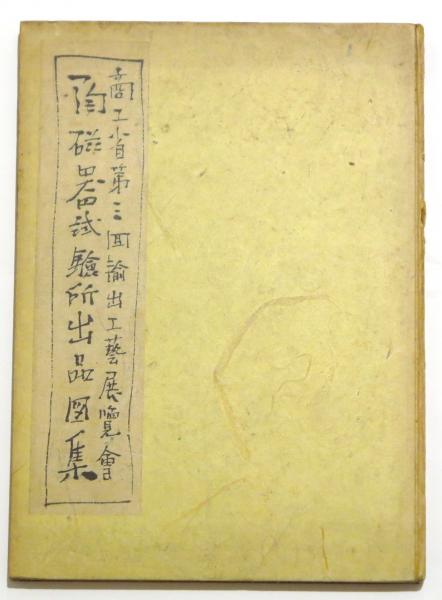 商工省第三回輸出工藝展覽會
陶磁器試驗所出品図集